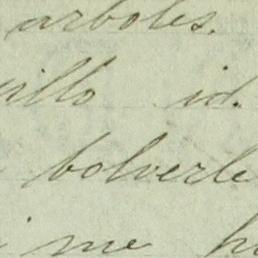 arboles.
illo id.
bolverle
me